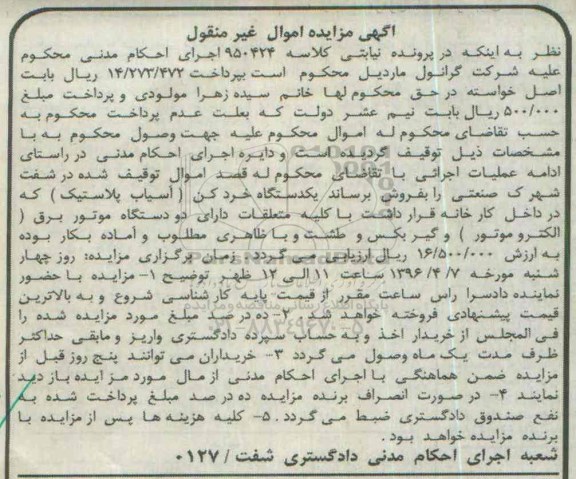 آگهی مزایده اموال غیر منقول
نظر به اینکه در پرونده نیابتی کلاسه ۹۵۰۴۲۴ اجرای احکام مدنی محکوم
علیه شرکت گرانول ماردیل محکوم است بپرداخت ۱۴/۲۷۳/۴۷۲ ریال بابت
اصل خواسته در حق محکوم لها خانم سیده زهرا مولودی و پرداخت مبلغ
۵۰۰/۰۰۰ ریال بابت نیم عشر دولت که بعلت عدم پرداخت محکوم به
حسب تقاضای محکوم له اموال محکوم علیه جهت وصول محکوم به با
مشخصات ذیل توقیف گردیده است و دایره اجرای احکام مدنی در راستای
ادامه عملیات اجرائی با تقاضای محکوم له قصد اموال توقیف شده در شفت
شهرک صنعتی را بفروش برساند یکدستگاه خرد کن (آسیاب پلاستیک) که
در داخل کارخانه قرار داشت با کلیه متعلقات دارای دو دستگاه موتور برق (
الکترو موتور) و گیر بکس و طشت و با ظاهری مطلوب و آماده بکار بوده
به ارزش ۱۶/۵۰۰/۰۰۰ ریال ارزیابی می گردد. زمان برگزاری مزایده: روز چهار
شنبه مورخه ۱۳۹۶/۴/۷ ساعت ۱۱ الی ۱۲ ظهر توضیح ۱- مزایده با حضور
نماینده دادسرا راس ساعت مقرر از قیمت پایه کارشناسی شروع و به بالاترین
قیمت پیشنهادی فروخته خواهد شد. ۲- ده در صد مبلغ مورد مزایده شده را
فی المجلس از خریدار اخذ و به حساب سپرده دادگستری واریز و مابقی حداکثر
ظرف مدت یک ماه وصول می گردد ۳- خریداران می توانند پنج روز قبل از
مزایده ضمن هماهنگی با اجرای احکام مدنی از مال مورد مزایده باز دید
نمایند ۴- در صورت انصراف برنده مزایده ده در صد مبلغ پرداخت شده به
نفع صندوق دادگستری ضبط می گردد. ۵- کلیه هزینه ها پس از مزایده با
برنده مزایده خواهد بود.
شعبه اجرای احکام مدنی دادگستری شفت / ۰۱۲۷